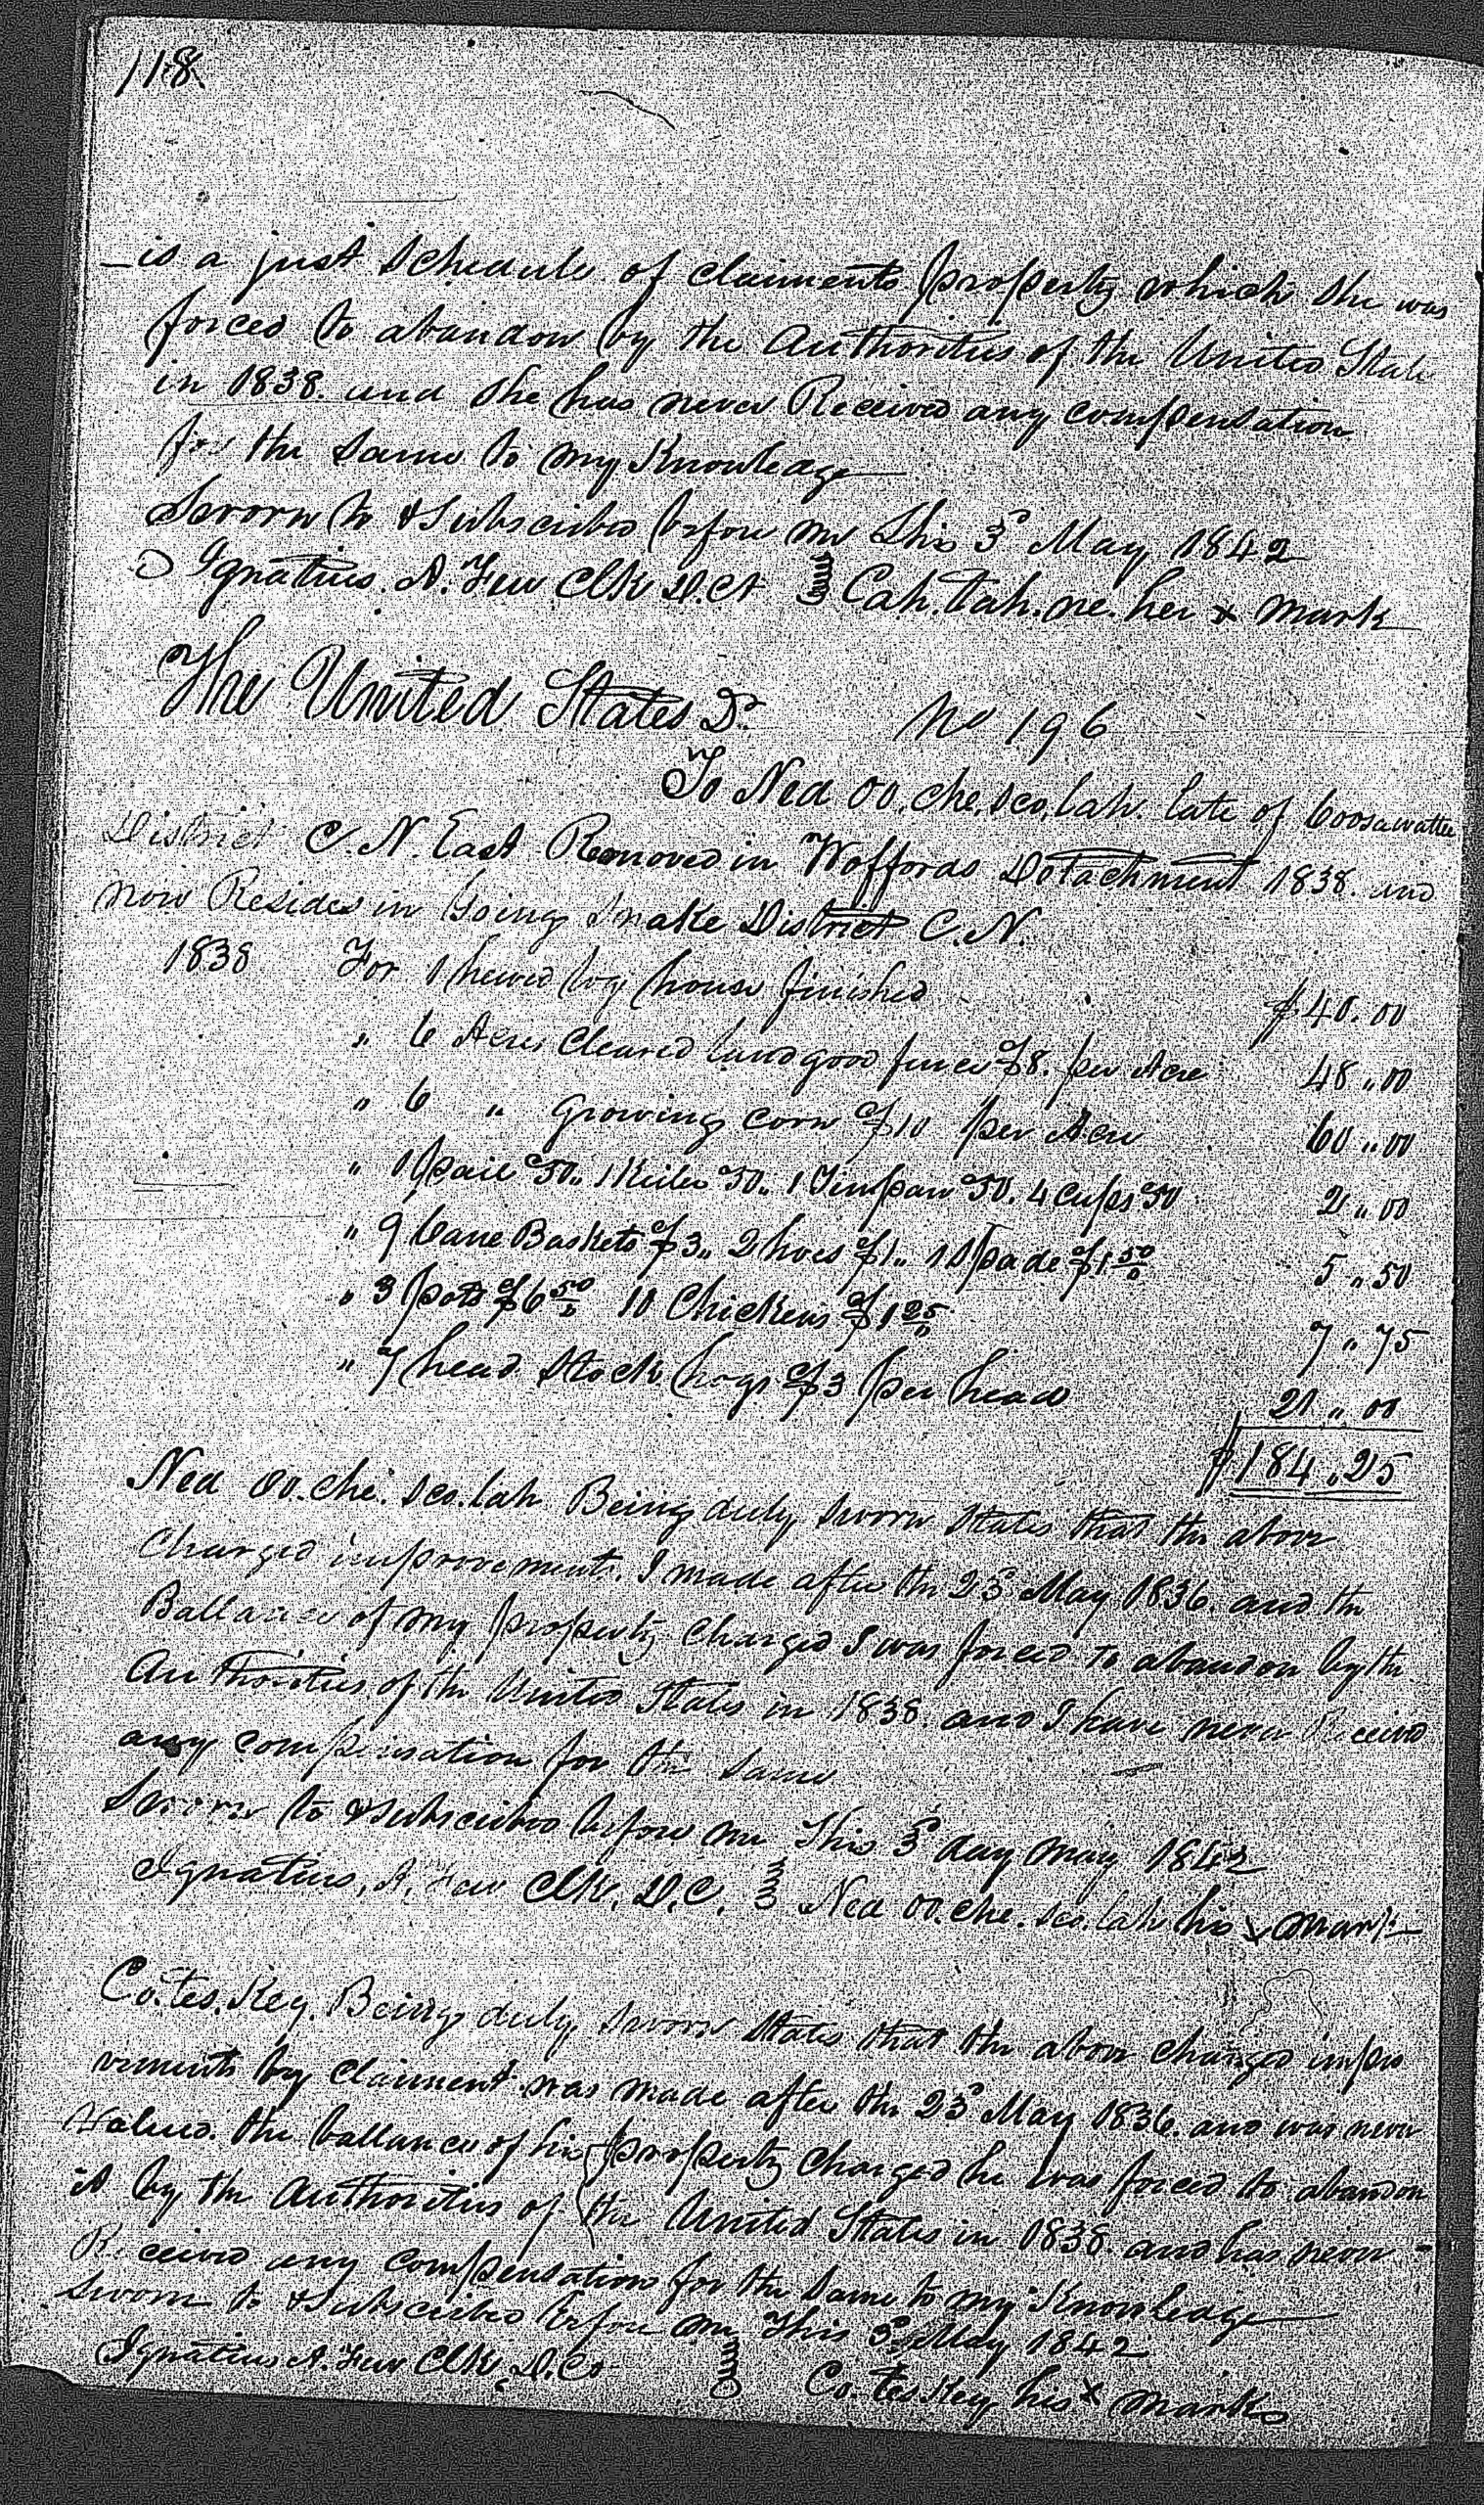 118
is a just schedule of claiments property which she was
forced to abandon by the Authorities of the United State
in 1838. and she has never Received any compensation
for the same to my Knowledge
Sworn to & Subscribed before me this 3d May 1842
Ignatius. A. Few Clk D. Ct Cah. tah. ne. her x mark
The United States Dr. No 196
To Ned oo. che. sco. lah. late of Coosawattee
District C. N. East Removed in Woffords Detachment 1838. and
now Resides in Going Snake District C. N.
1838 For 1 hewed log house finished $40.00
" 6 Acres Cleared land good fence $8. per Acre 48 " 00
" 6 " growing corn $10 per Acre 60 " 00
" 1 pail 50 " 1 Keiler 50 " 1 Tinpan 50. 4 cups 50 2 " 00
" 9 Cane Baskets $3 " 2 hoes $1 " 1 Spade $1 50 5 " 50
" 3 pots $6 50 10 Chickens $1 25 7 " 75
" 7 head Stock hogs $3 per head 21 " 00
$184.25
Ned oo. che. sco. lah Being duly sworn States that the above
Charged improvements. I made after the 23d May 1836. and the
Ballance of my property charged I was forced to abandon by the
Authorities of the United States in 1838. and I have never Received
any compensation for the same
Sworn to & Subscribed before me This 3d day May 1842
Ignatius. A. Few Clk. D. C. Ned oo. che. sco. lah his x mark
Co. tes. Key. Being duly sworn States that the above charged impro
vements by claiment was made after the 23d May 1836. and was never
Valued. the ballance of his property charged he was forced to abandon
it by the Authorities of the United States in 1838. and has never
Received any compensation for the same to my Knowledge
Sworn to & Subscribed before me This 3d May 1842
Ignatius A. Few Clk. D. Ct Co. tes Key his x mark